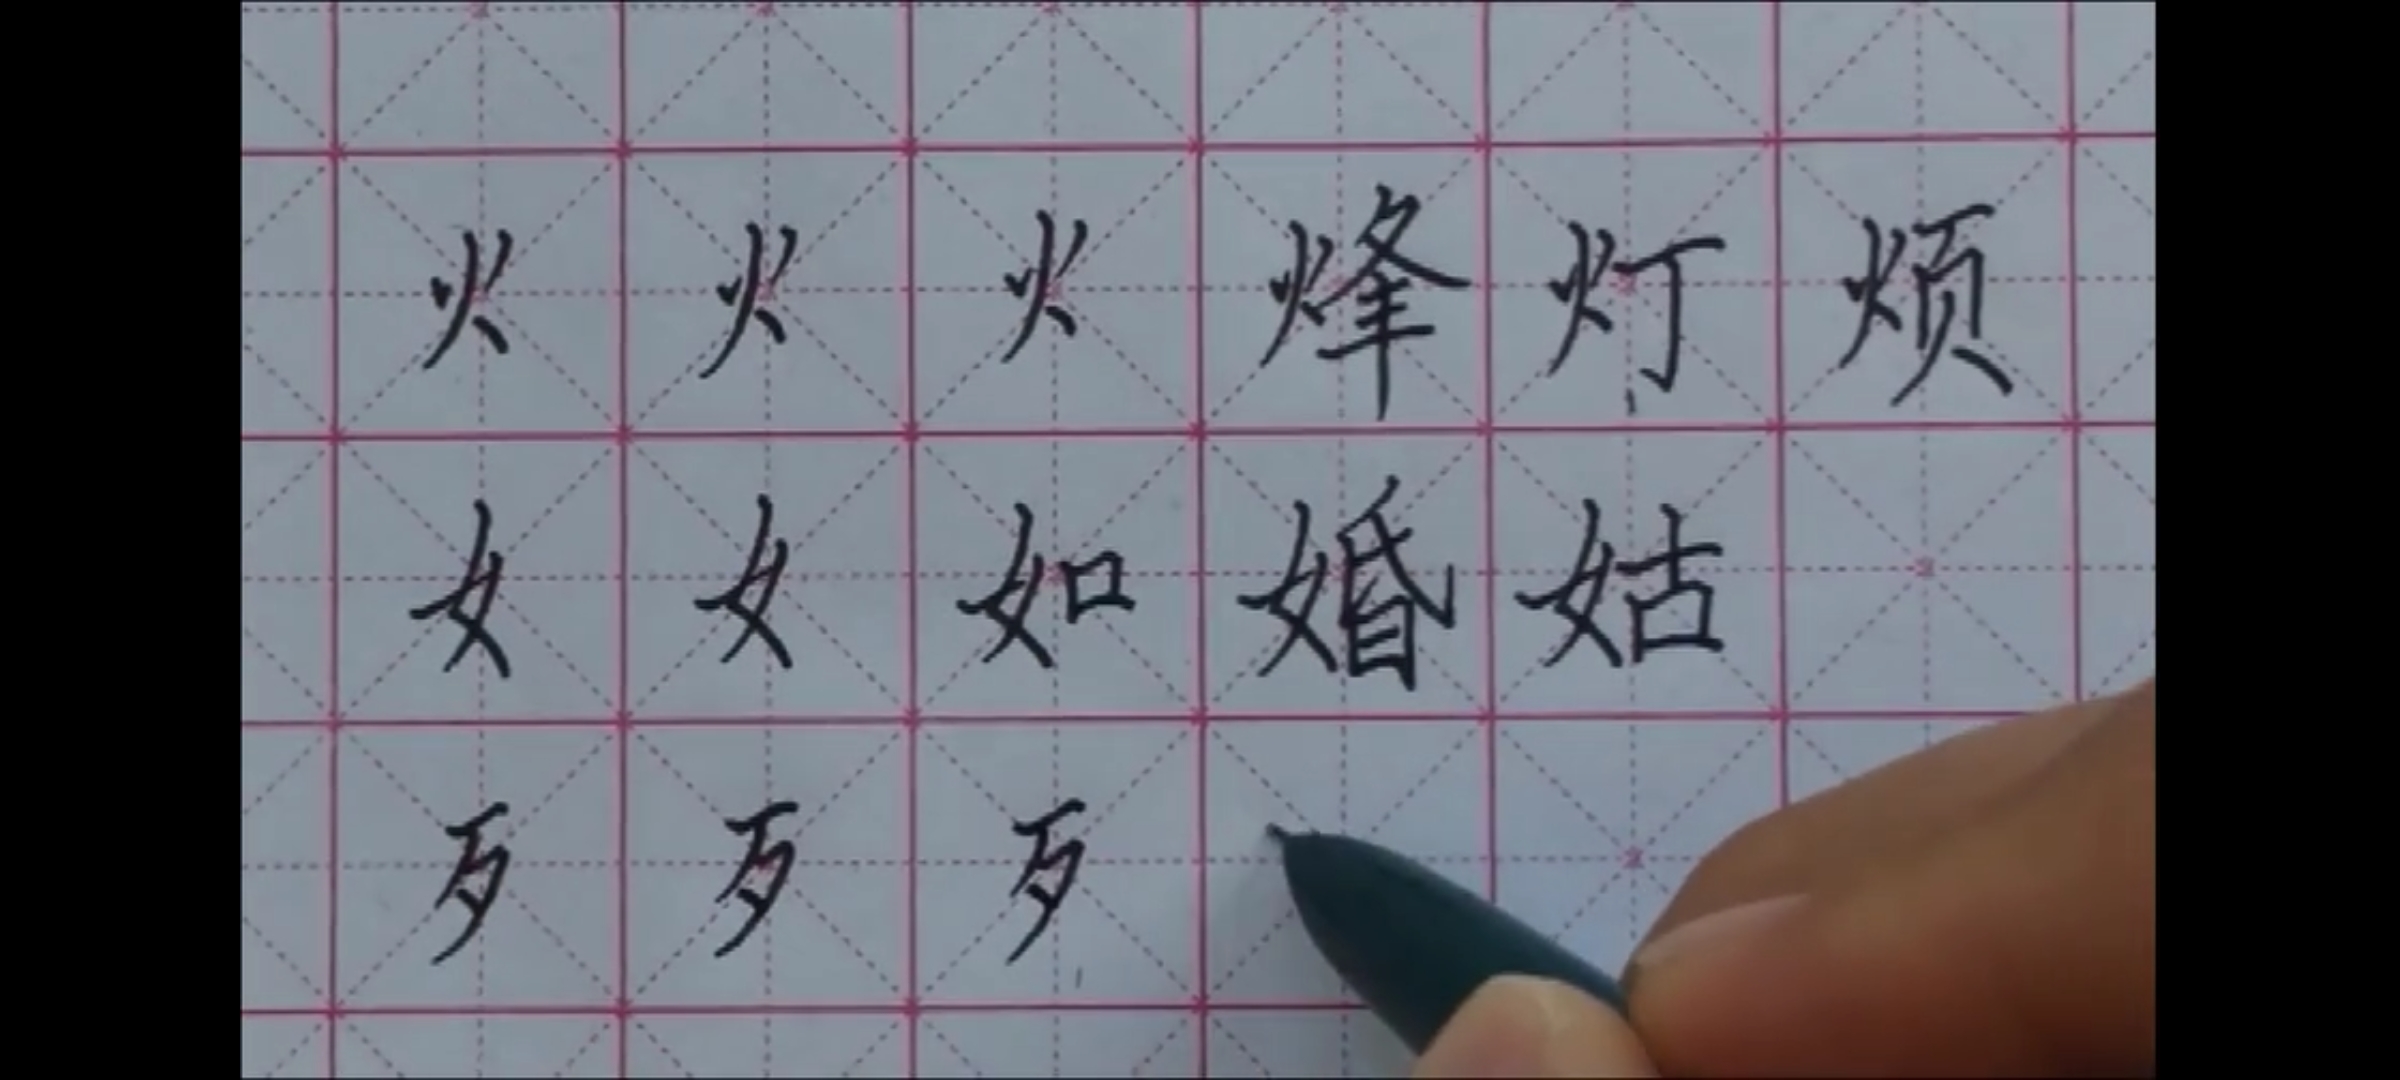 火 火 火 烽 灯 烦
女 女 如 婚 姑
歹 歹 歹